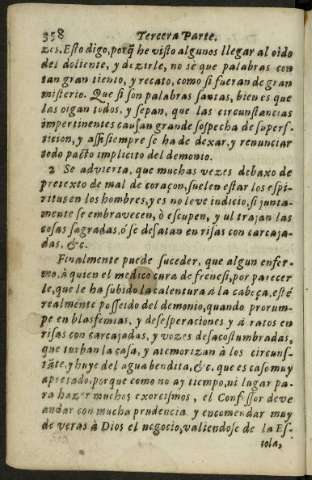 358 Tercera Parte.
zes. Esto digo, porq̃ he visto algunos llegar al oido
del doliente, y dezirle, no se que palabras con
tan gran tiento, y recato, como si fueran de gran
misterio. Que si son palabras santas, bien es que
las oigan todos, y sepan, que las circunstancias
impertinentes causan grande sospecha de supers-
ticion, y assi siempre se ha de dexar, y renunciar
todo pacto implicito del demonio.
2 Se advierta, que muchas vezes debaxo de
pretexto de mal de coraçon, suelen estar los espi-
ritus en los hombres, y es no leve indicio, si junta-
mente se embravecen, ò escupen, y ultrajan las
cosas sagradas, ò se desatan en risas con carcaja-
das, &c.
Finalmente puede suceder, que algun enfer-
mo, à quien el medico cura de frenesi, por parecer
le, que le ha subido la calentura à la cabeça, estè
realmente posseido del demonio, quando prorum-
pe en blasfemias, y desesperaciones y à ratos en
risas con carcajadas, y vozes desacostumbradas,
que turban la casa, y atemorizan à los circuns-
tãtes, y huye del agua bendita, &c. que es caso muy
apretado, porque como no ay tiempo, ni lugar pa-
ra hazer muchos exorcismos, el Confessor deve
andar con mucha prudencia y encomendar muy
de veras à Dios el negocio, valiendose de la Es-
tola,